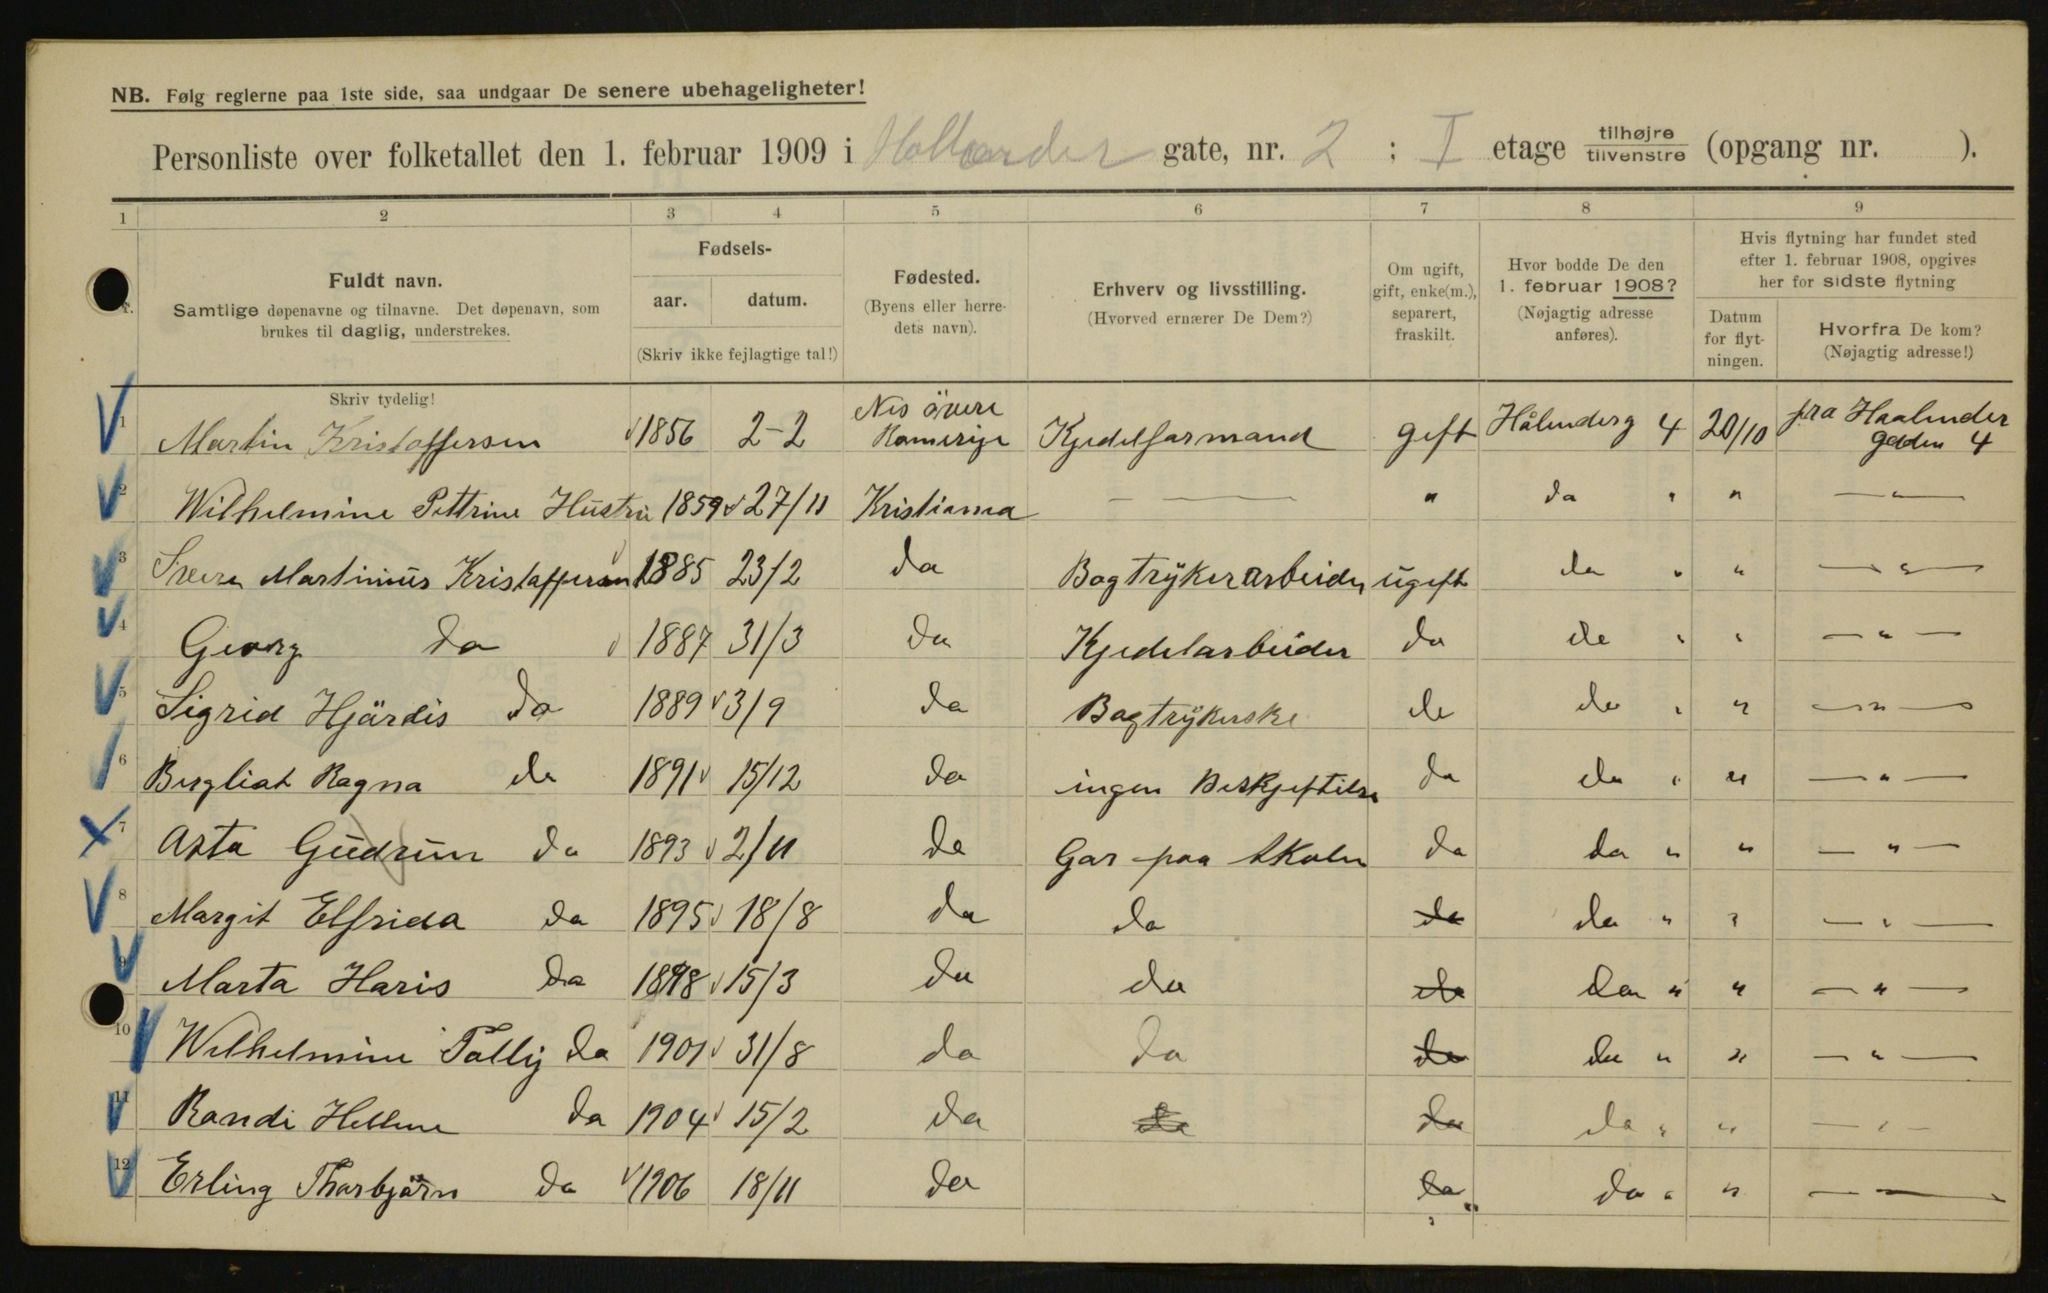 NB. Følg reglerne paa 1ste side, saa undgaar De senere ubehageligheter!
Personliste over folketallet den 1. februar 1909 i Hollender gate, nr. 2 ; I etage tilhøjre/tilvenstre (opgang nr. ).
1 2 3 4 5 6 7 8 9
Fuldt navn.
Samtlige døpenavne og tilnavne. Det døpenavn, som brukes til daglig, understrekes.
Skriv tydelig!
Fødsels-
aar. datum.
(Skriv ikke fejlagtige tal!)
Fødested.
(Byens eller herredets navn).
Erhverv og livsstilling.
(Hvorved ernærer De Dem?)
Om ugift, gift, enke(m.), separert, fraskilt.
Hvor bodde De den 1. februar 1908?
(Nøjagtig adresse anføres).
Hvis flytning har fundet sted efter 1. februar 1908, opgives her for sidste flytning
Datum for flytningen.
Hvorfra De kom?
(Nøjagtig adresse!)
1 Martin Kristoffersen 1856 2-2 Nes övere Romerige Kjedelformand Geft Hålenderg 4 20/10 fra Haalender gaden 4
2 Wilhelmine Pettrine Hustru 1859 27/11 Kristiania — " da " " — " —
3 Martinius Kristoffersen 1885 23/2 da Bogtrÿkerarbeider ugeft da " " — " —
4 Georg da 1887 31/3 da Kjedelarbeider da da " " — " —
5 Sigrid Hjärdis da 1889 3/9 da Bogtrÿkerske da da " " — " —
6 Bergliot Ragna da 1891 15/12 da ingen Beskjeftilse da da " " — " —
7 Asta Gudrun da 1893 2/11 da Gar paa Skolen da da " " — " —
8 Margit Elfrida da 1895 18/8 da da da da " " — " —
9 Marta Haris da 1898 15/3 da da da da " " — " —
10 Wilhelmine Tolly da 1901 31/8 da da da da " " — " —
11 Randi Hellene da 1904 15/2 da da da da " " — " —
12 Erling Thorbjörn da 1906 18/11 da da da " " — —